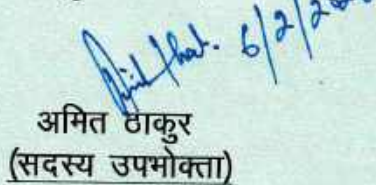 6/2/2
अमित ठाकुर
(सदस्य उपभोक्ता)